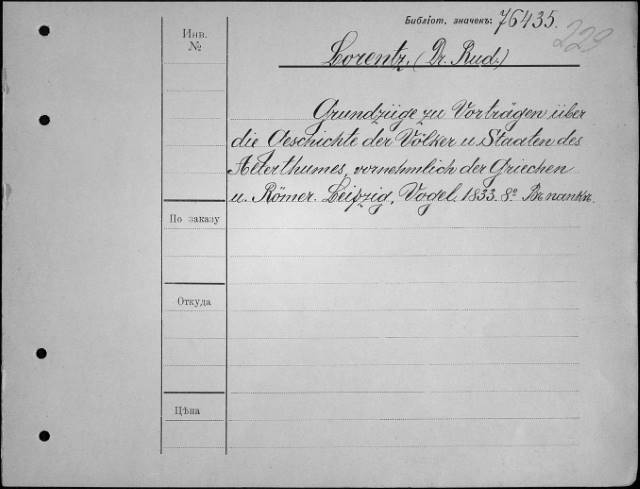 Библіот. значекъ: 76435.
229
Инв.
№
Lorentz, (Dr. Rud.)
Grundzüge zu Vorträgen über
die Geschichte der Völker u. Staaten des
Alterthumes, vornehmlich der Griechen
u. Römer. Leipzig, Vogel. 1833. 8º. Въ папкѣ.
По заказу
Откуда
Цѣна